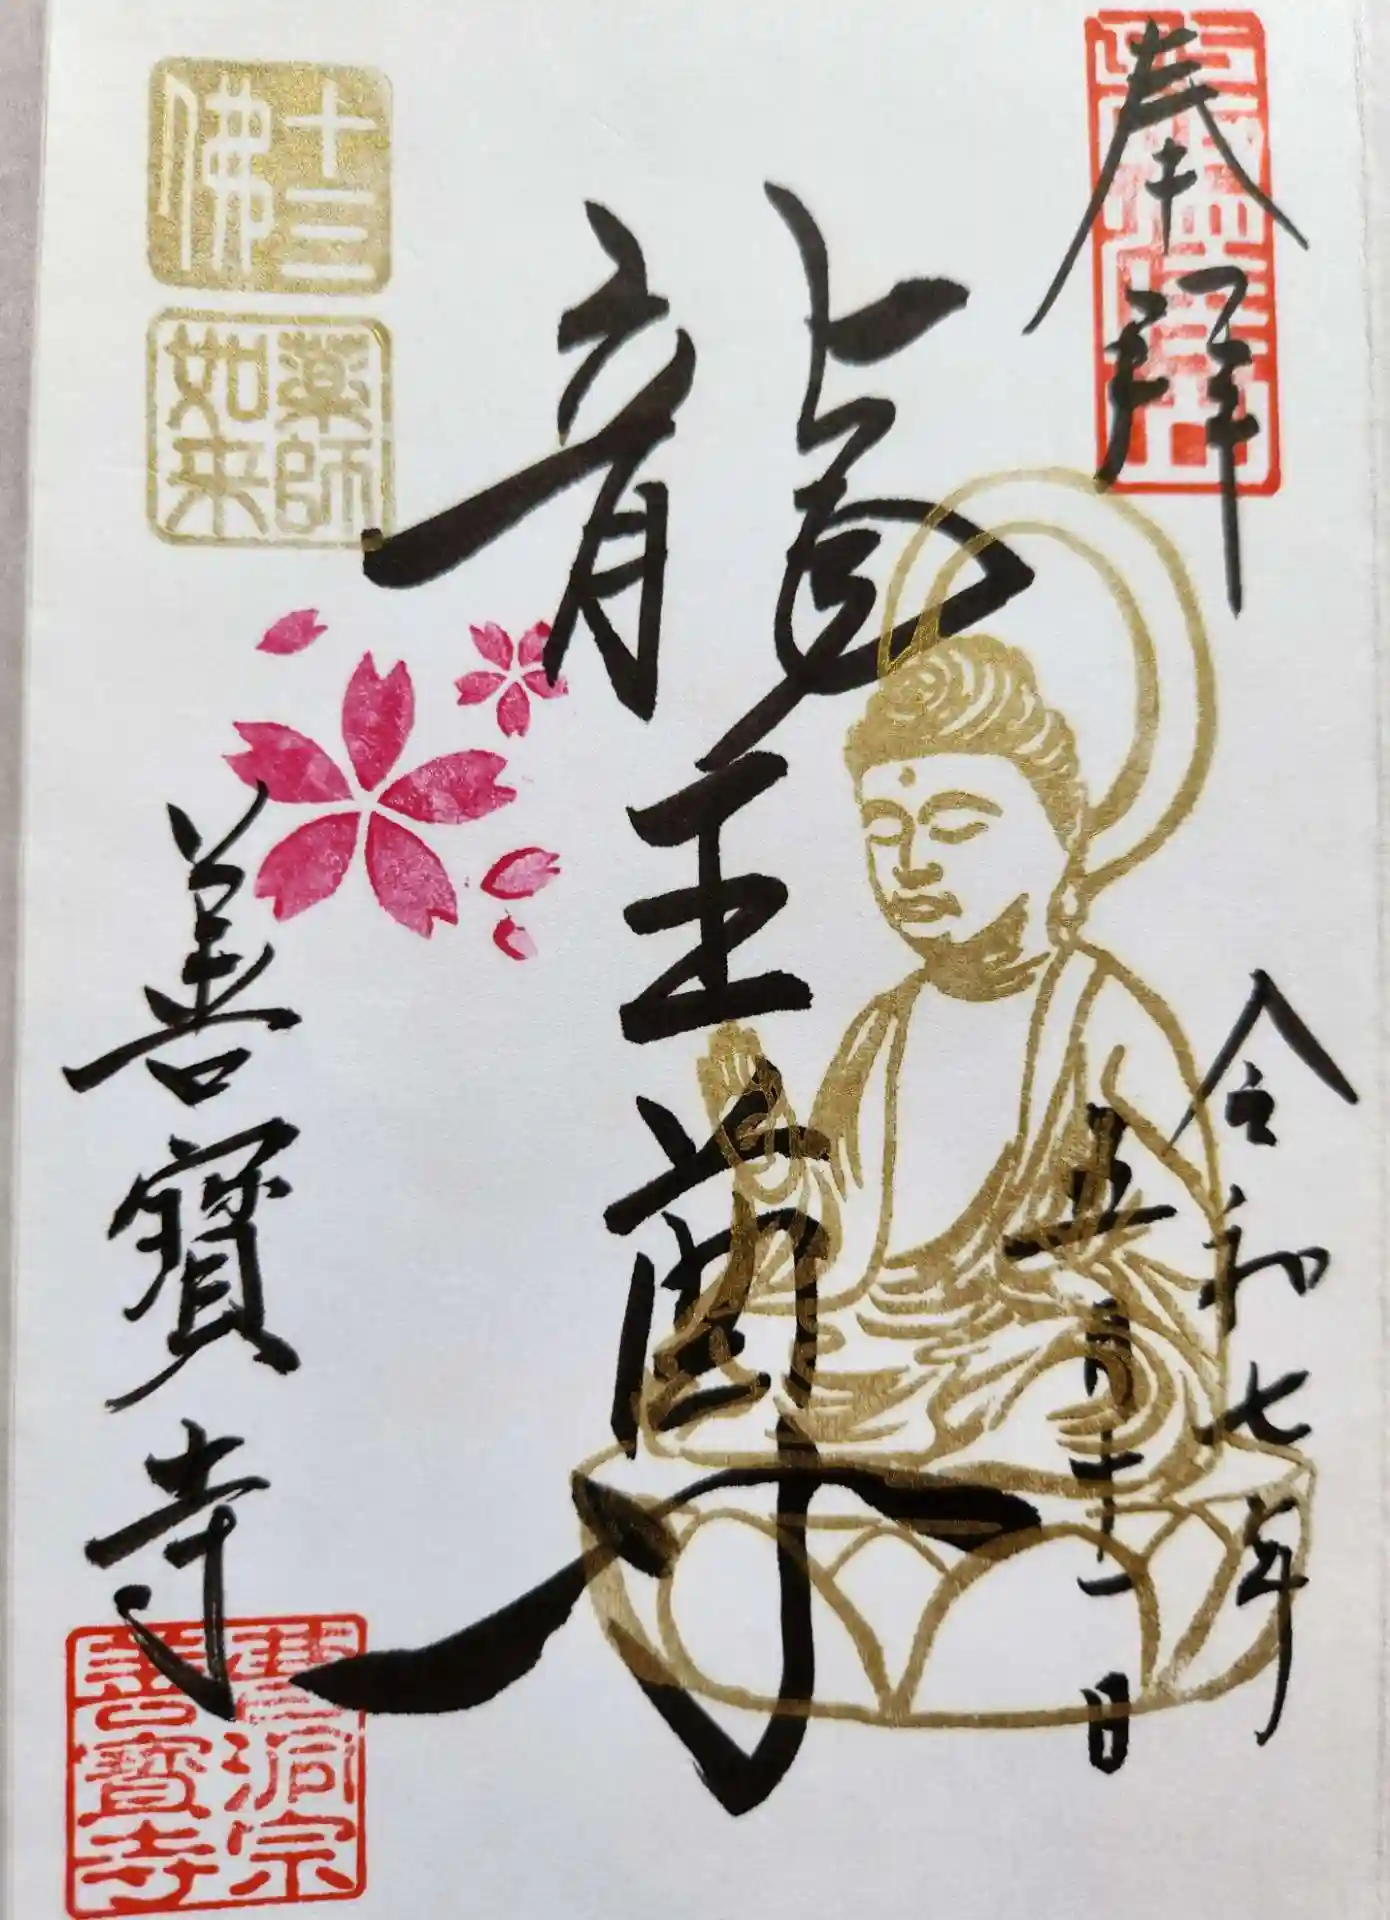 奉拝
令和七年
五月十一日
龍王尊
十三佛
薬師如来
善寳寺
曹洞宗
善寳寺